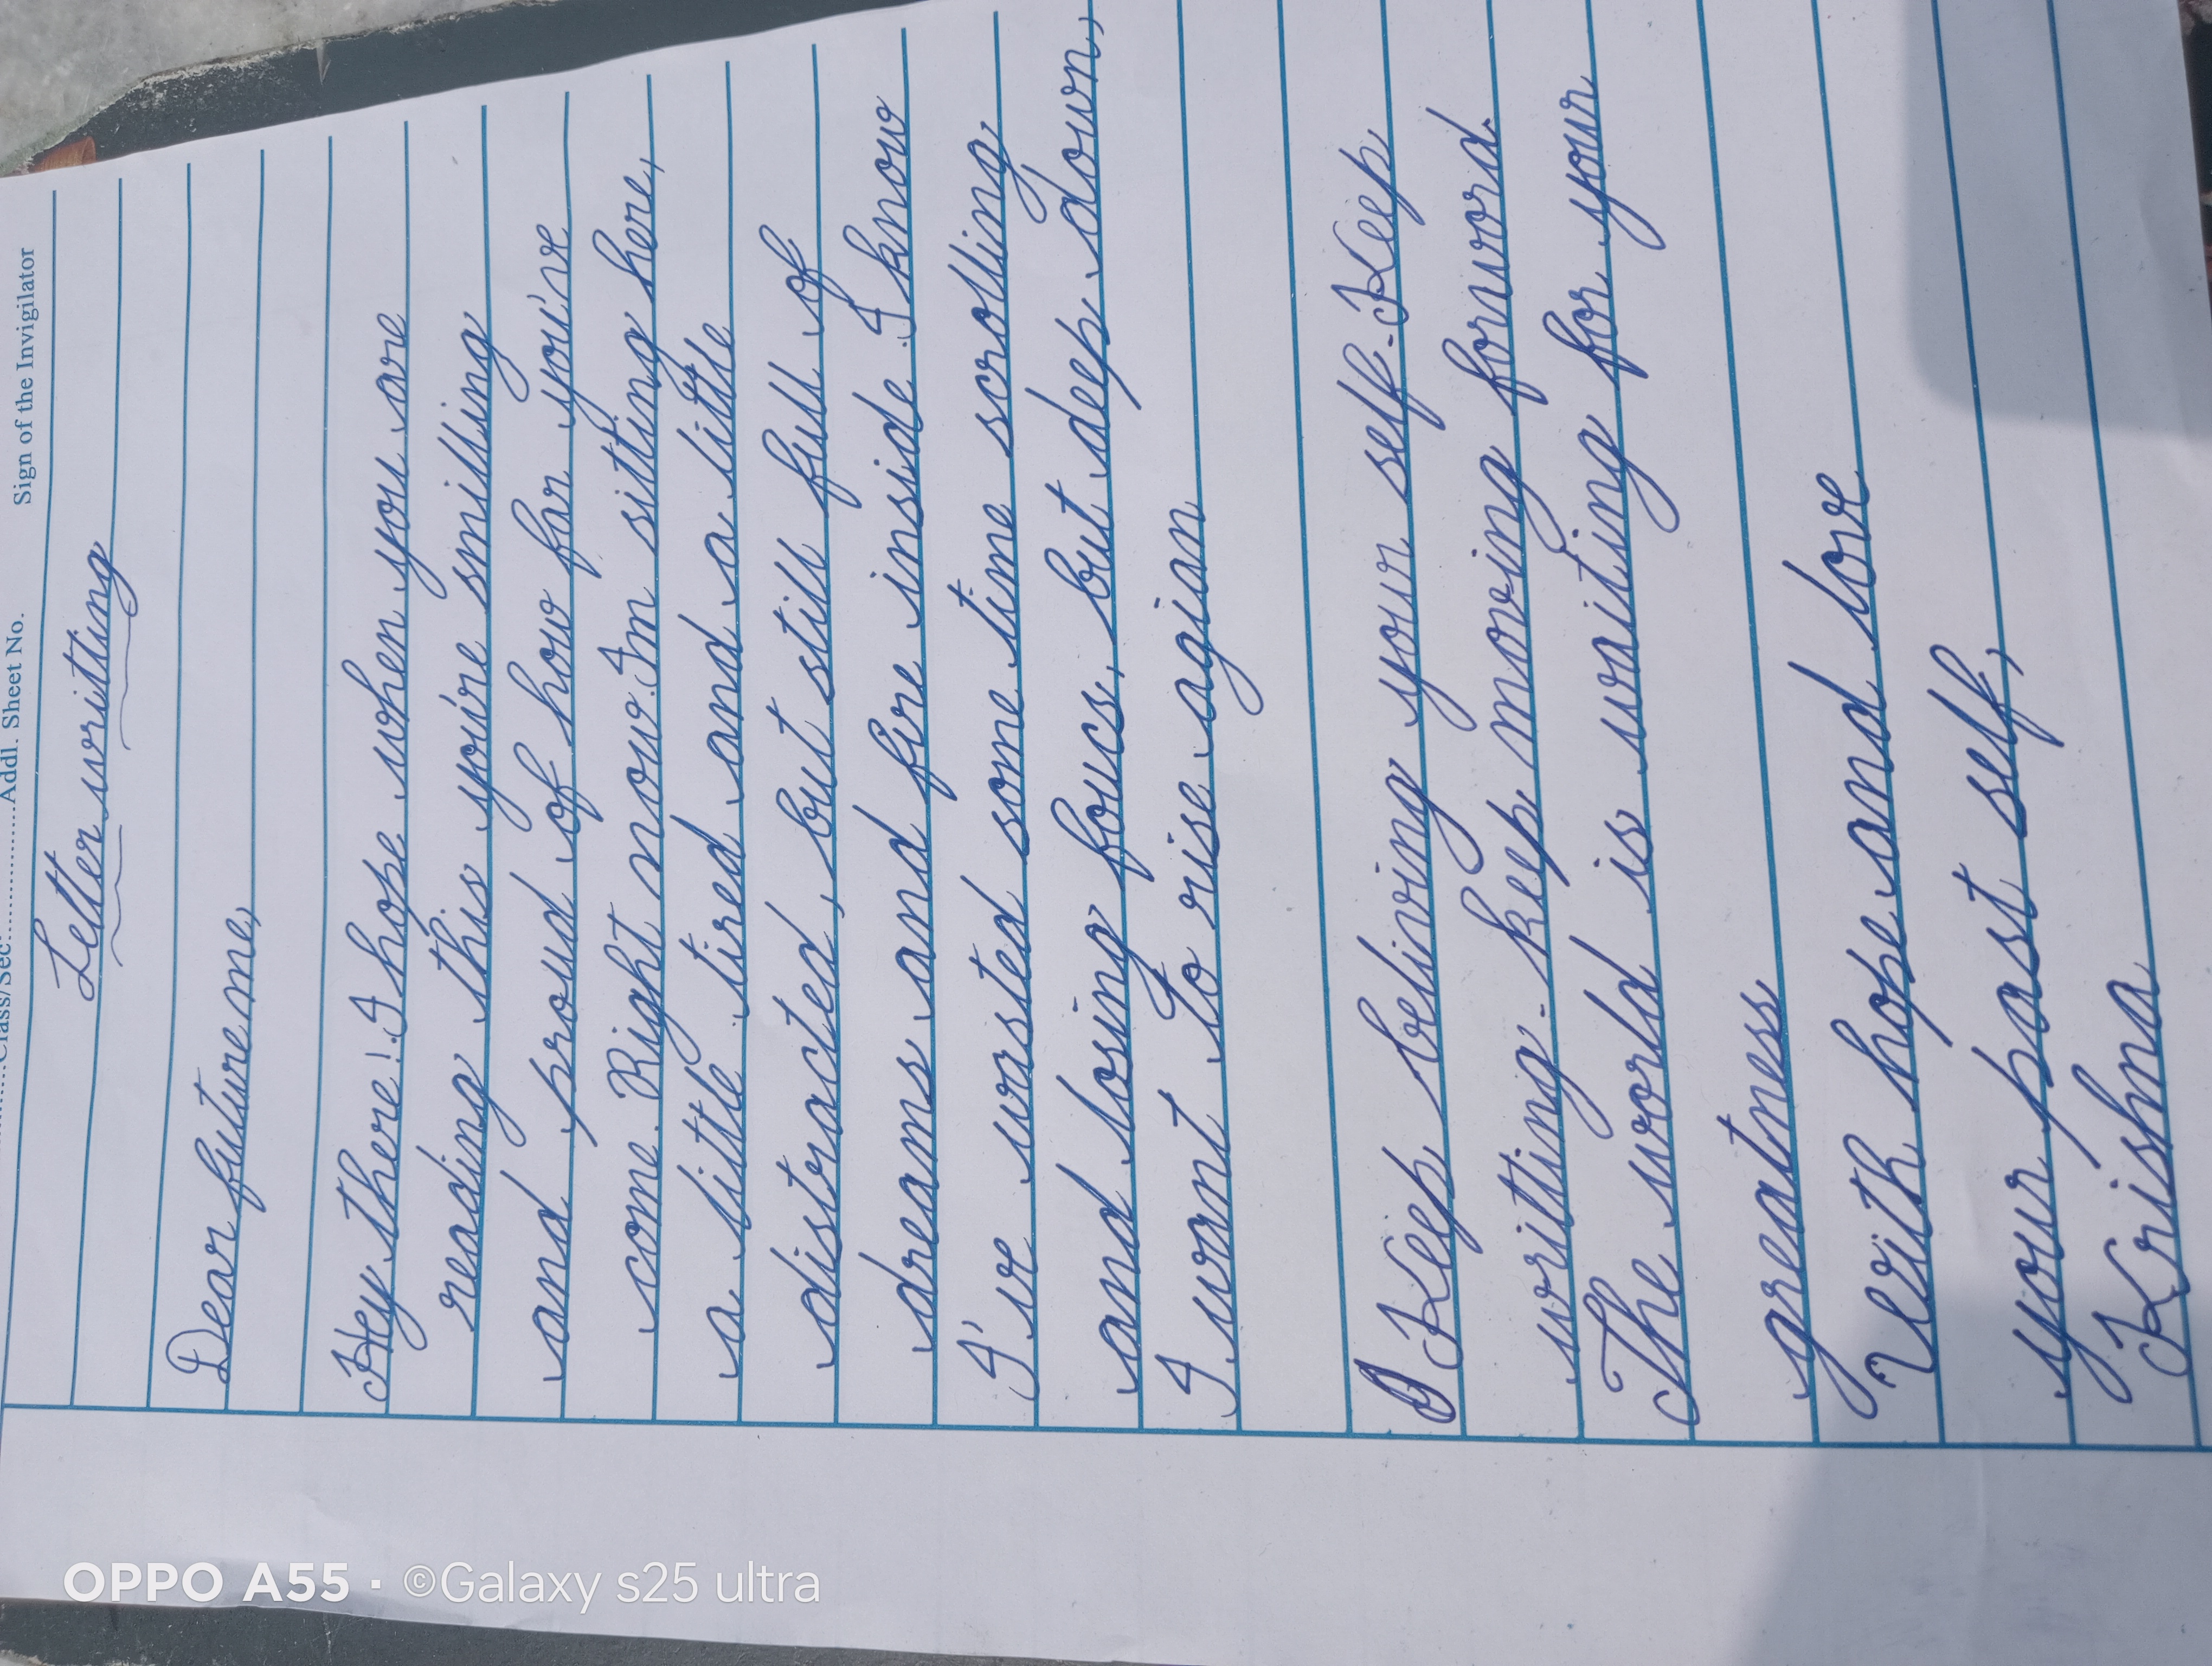 Class/Sec. Addl. Sheet No. Sign of the Invigilator
Letter writting
Dear future me,
Hey there! I hope when you are
reading this you're smilling
and proud of how far you've
come. Right now. Im sitting here,
a little tired and a little
distracted, but still full of
dreams and fire inside. I know
I've wasted some time scrolling
and losing foucs, but deep down,
I want to rise agian
Keep beliving your self. Keep
writting. keep moving forword.
The world is waiting for your
greatness
With hope and love
your past self,
Krishna
OPPO A55 · ©Galaxy s25 ultra